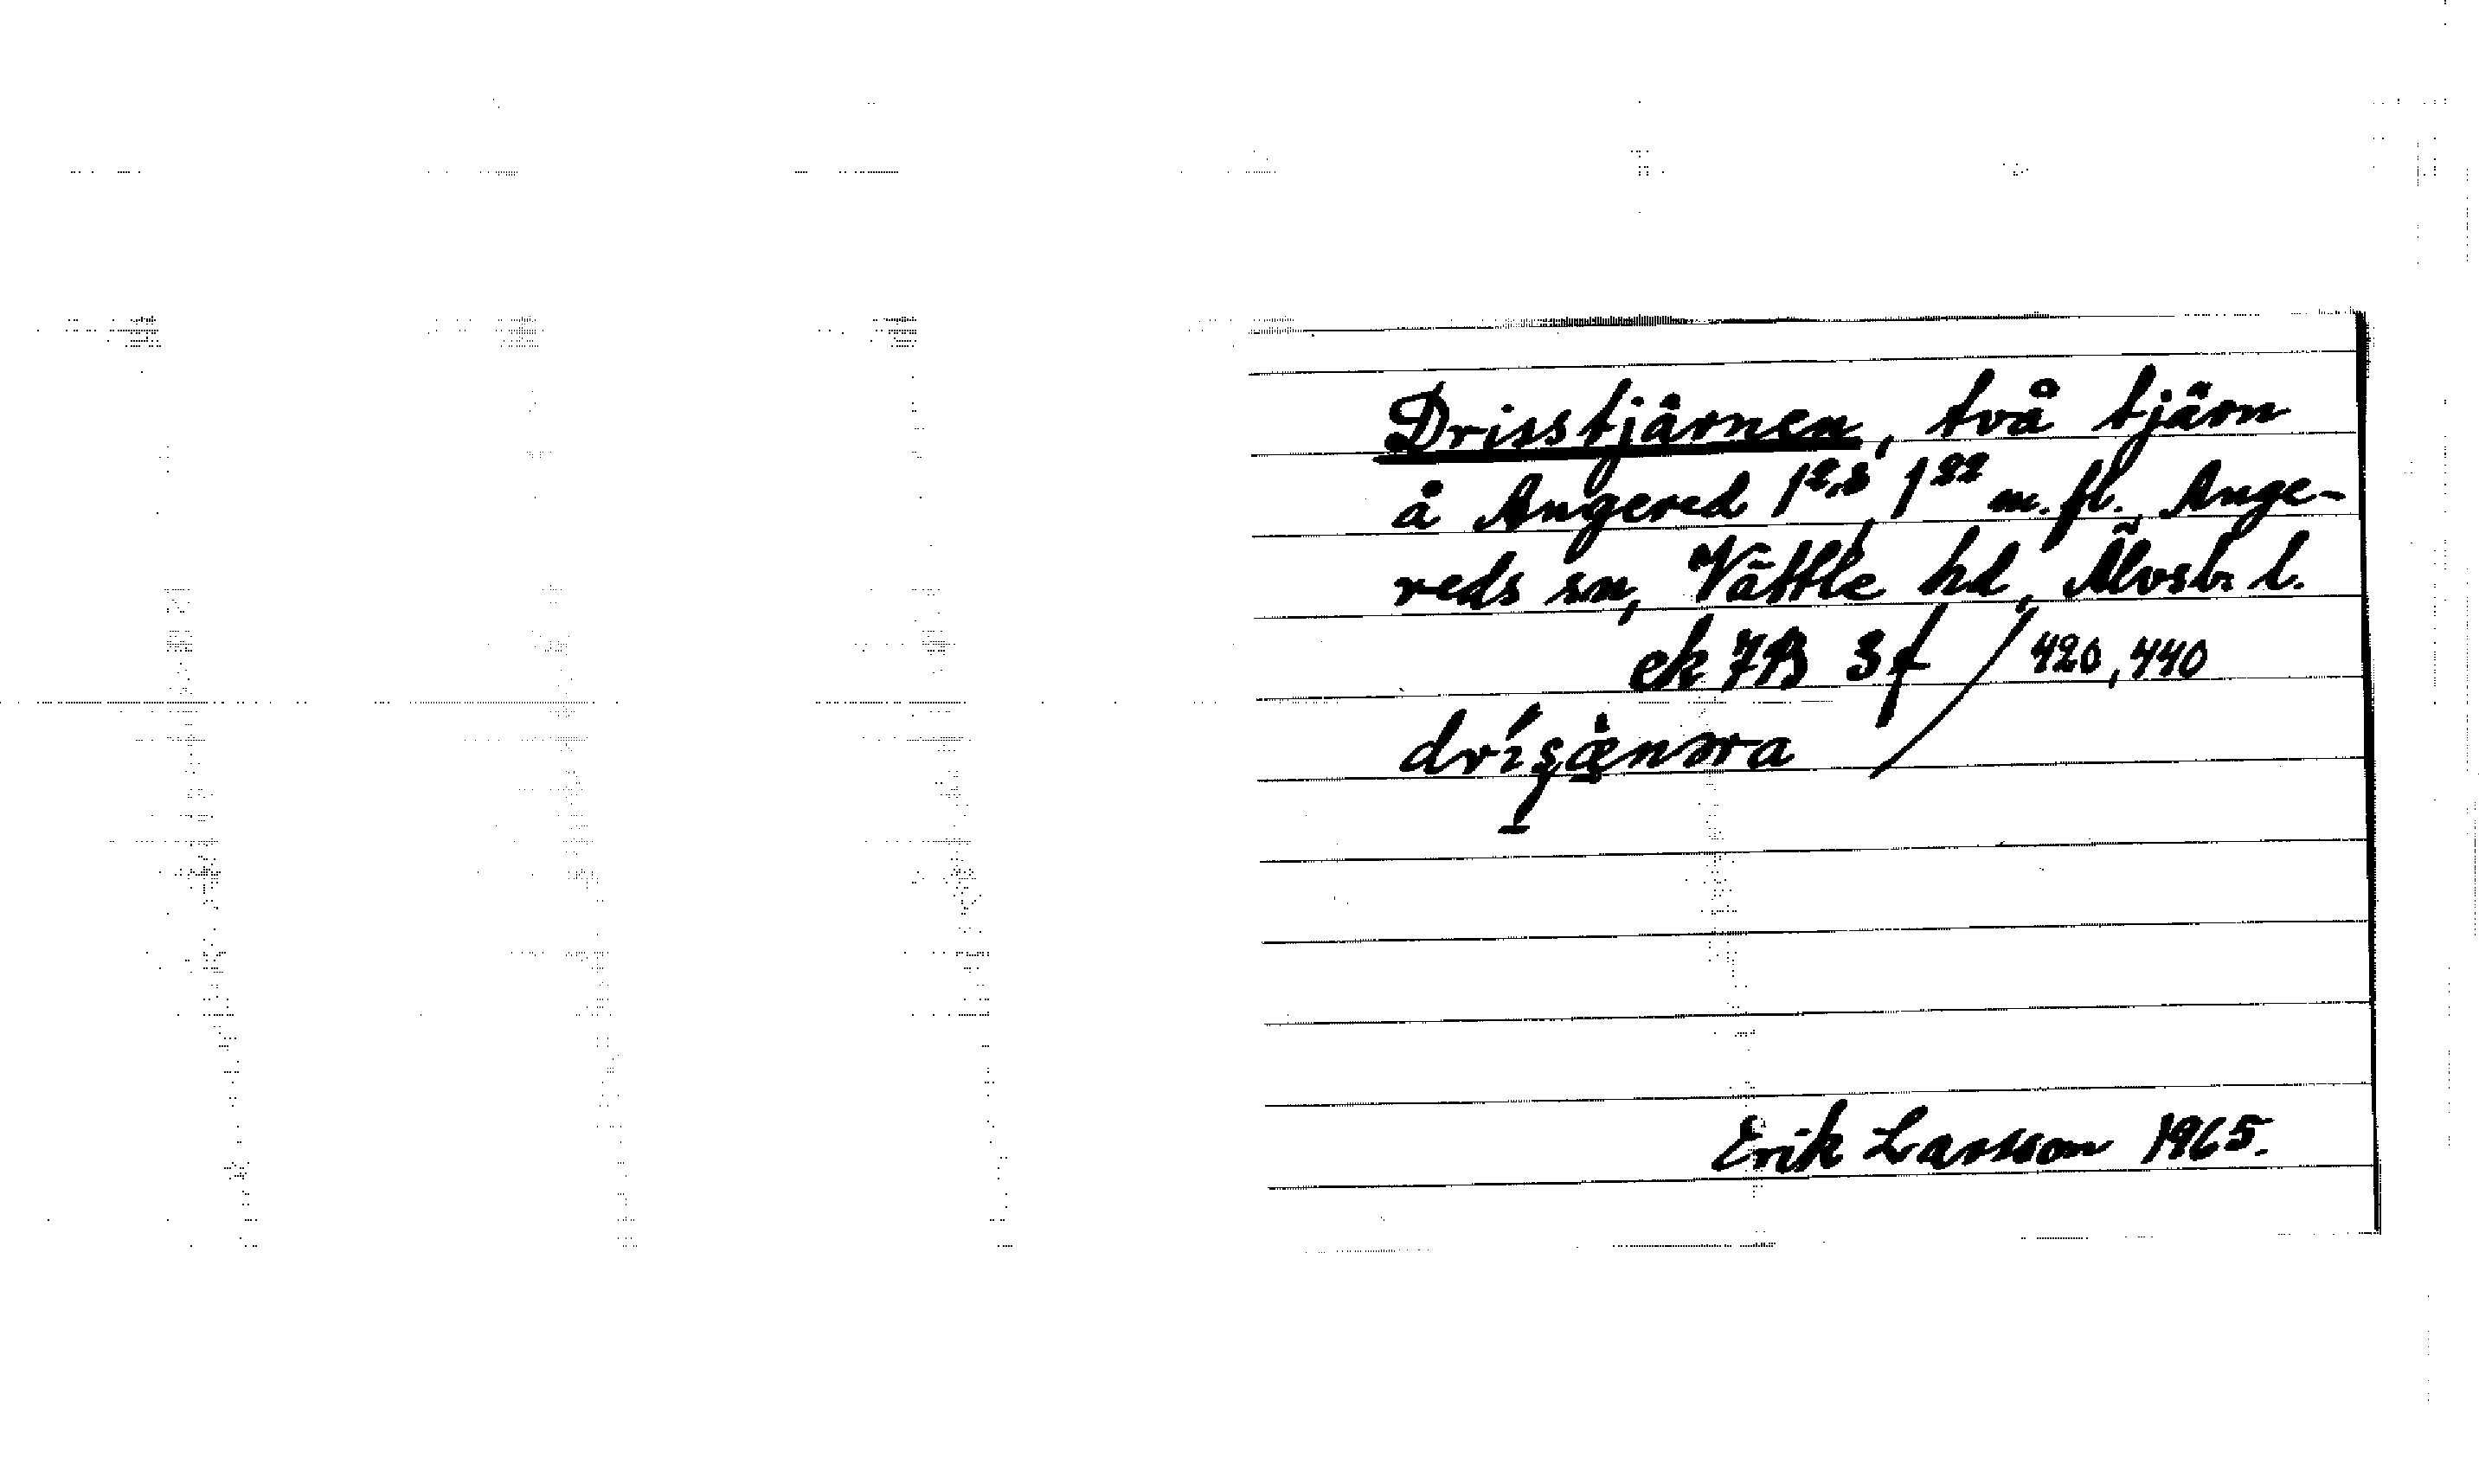 Drisstjärnen, två tjärn
å Angered 1²,³, 1²² m.fl., Ange-
reds sn, Vättle hd, Älvsb. l.
ek 7B 3f / 420, 440
Erik Larsson 1965.